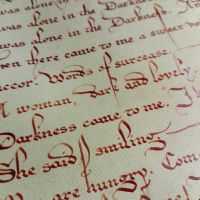 was alone in the
was alone in the Darkness
was alone in the Darkness.
when there came to me a sweet
succor. Words of surcease.
A woman, dark and lovely,
Darkness come to me. I
She said, smiling, Come
are hungry.